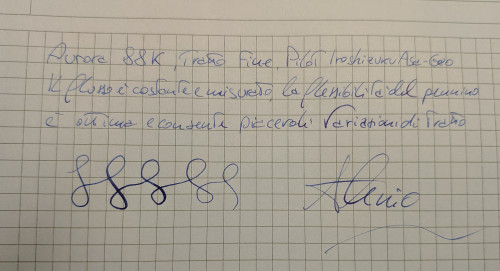 Aurora 88K, Tratto Fine, Pilot Iroshizuku Asa-Gao
Il flusso è costante e misurato, la flessibilità del pennino
è ottima e consente piacevoli variazioni di tratto